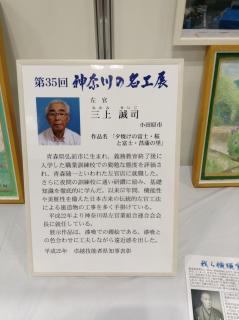 第35回 神奈川の名工展
左官
みかみ せいじ
三上 誠司
小田原市
作品名 「夕焼けの富士・桜
と富士・菖蒲の里」
青森県弘前市に生まれ、義務教育終了後に
入学した職業訓練校での勤勉な態度を評価さ
れ、青森随一といわれた左官店に就職した。
さらに夜間の訓練校に通い研鑽に励み、基礎
知識を徹底的に学んだ。以来57年間、機能性
や美観性を備えた日本古来の伝統的な左官工
法による建造物の工事を多く手掛けている。
平成22年より神奈川県左官業組合連合会会
長に就任している。
展示作品は、漆喰での鏝絵である。漆喰と
の色合わせに工夫しながら遠近感を出した。
平成25年 卓越技能者県知事表彰